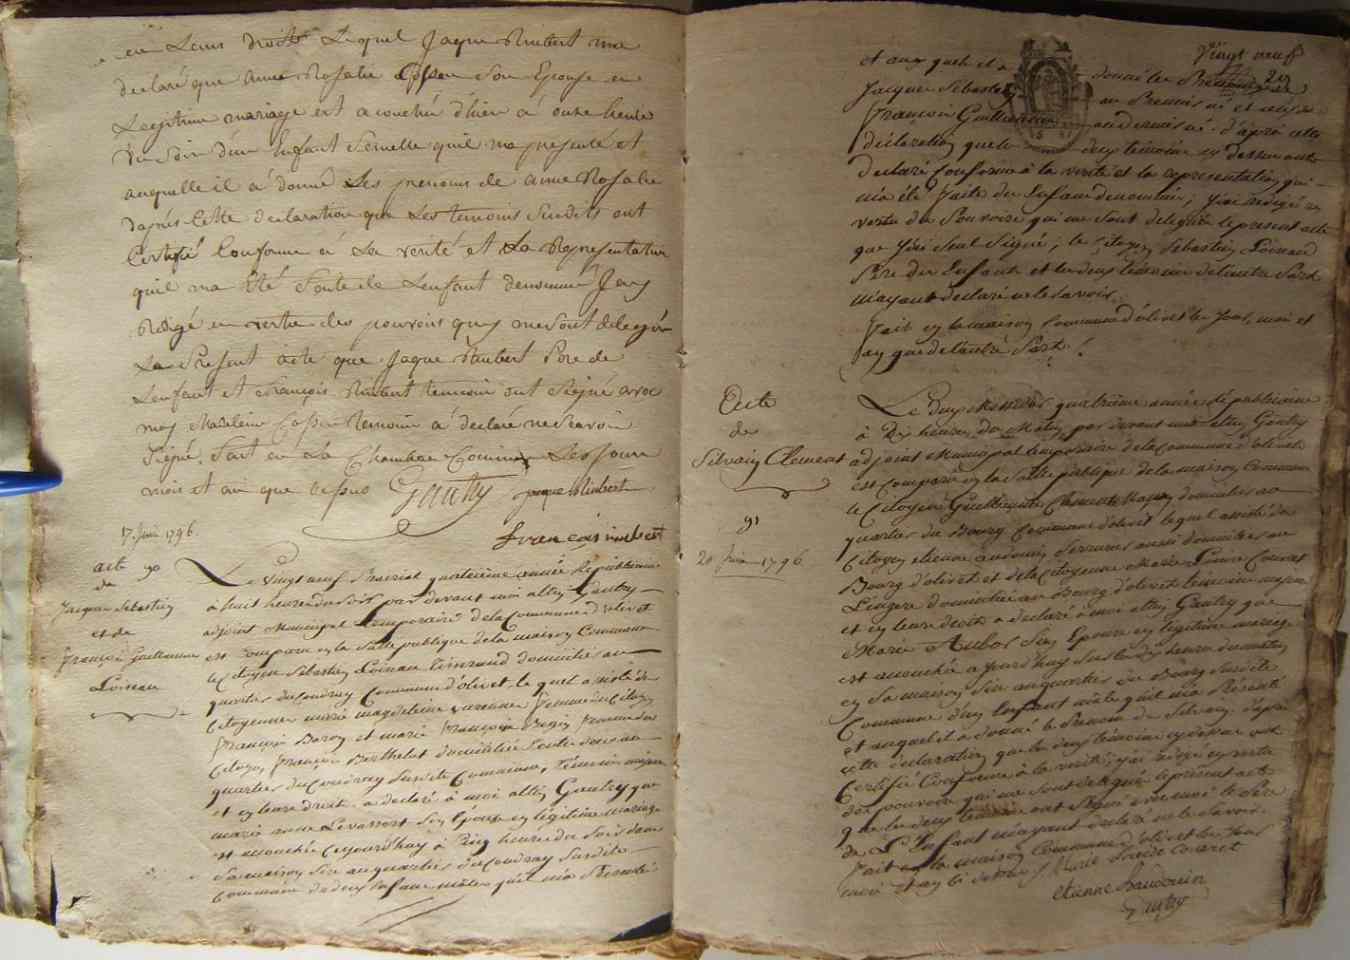 en Leurs droits Lequel Jaque Rimbert ma
declaré que anne Rosalie son Epouse en
Legitime mariage est acouchée d'hier à onze heures
du soir d'un Enfant femelle quil ma presenté et
auquelle il a donné Les prenoms de anne Rosalie
daprés Cette declaration que Les temoins susdits ont
Certifié Conforme a La verité et La Representation
quil ma été faite de Lenfant denommé Jay
Redigé en vertu des pouvoirs quy me sont delegués
Le Present acte que Jaque Rimbert Pere de
Lenfant et francois Rimbert temoin ont Signé avec
moy Madeleine temoin a declaré ne Scavoir
Signé. fait en La Chambre Commune Les jour
mois et an que dessus Gautry jaque Rimbert
francois rimbert
17. Juin 1796.
acte 90
de
Jacques Sebastien
et de
François Guillaume
Loineau
Le vingt neuf Prairial quatrieme année Republicaine
à huit heures du soir par devant moi Gautry
adjoint Municipal temporaire de la Commune d'olivet
est comparu en la salle publique de la maison Commune
le Citoyen Sebastien Loineau domicilié au
quartier du Coudray Commune d'olivet, le quel assisté des
Citoyennes marie magdeleine femme du Citoyen
François et marie françoise femme du
Citoyen françois Berthelot domiciliées toutes deux au
quartier du Coudray susdite Commune, témoins majeurs
et en leurs droits a declaré à moi Gautry que
marie anne Levassort son Epouse en légitime mariage
est accouchée aujourd'huy à Cinq heures du soir dans
sa maison sise au quartier du Coudray susdite
Commune de deux Enfans mâles qu'il m'a Présentés
Vingt neuf
29
et aux quels il a donné les Prenoms de
Jacques Sebastien au Premier né et celui de
François Guillaume au dernier né. d'après cette
déclaration que les deux témoins cy dessus ont
declaré Conforme à la verité et la representation qui
m'a été faite des Enfans denommés, j'ai redigé en
vertu des Pouvoirs qui me sont delegués le present acte
que j'ai seul Signé, le Citoyen Sebastien Loineau
Père des Enfants et les deux témoins
m'ayant declaré ne le savoir.
Fait en la maison Commune d'olivet les Jour, mois et
an que de l'autre Part.
Acte
de
Silvain Clement
91
20 Juin 1796
Le Deux Messidor quatrième année républicaine
à Dix heures du Matin, par devant moi Gautry
adjoint Municipal temporaire de la Commune d'olivet
est comparu en la salle publique de la maison Commune
le Citoyen Guillaume Clement domicilié au
quartier du Bourg Commune d'olivet lequel assisté du
Citoyen etienne Baudouin Serrurier aussi domicilié au
Bourg d'olivet et de la Citoyenne Marie Couret
Lingere domiciliée au Bourg d'olivet temoins majeurs
et en leurs droits a declaré à moi Gautry que
Marie son Epouse en légitime mariage
est accouchée aujourd'huy sur les dix heures du matin
en sa maison sise au quartier du Bourg susdite
Commune d'un Enfant mâle qu'il m'a Présenté
et auquel il a donné le Prenom de Silvain. d'après
cette declaration que les deux témoins cy dessus ont
Certifié Conforme à la verité, j'ai redigé en vertu
des pouvoirs qui me sont delegués le présent acte
que les deux témoins ont Signé avec moi le Père
de L'Enfant m'ayant declaré ne le savoir.
Fait en la maison Commune d'olivet les Jour
mois et an ci dessus. Marie Couret
etienne Baudouin
Gautry